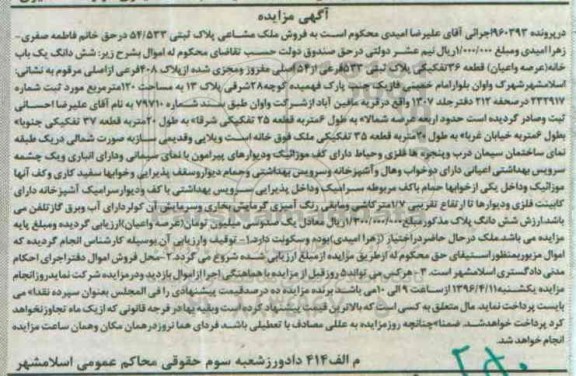 آگهی مزایده
درپرونده ۹۶۰۳۹۳اجرائی آقای علیرضا امیدی محکوم است به فروش ملک مشاعی پلاک ثبتی ۵۴/۵۳۳ درحق خانم فاطمه صفری-
زهرا امیدی ومبلغ ۱/۰۰۰/۰۰۰ریال نیم عشر دولتی درحق صندوق دولت حسب تقاضای محکوم له اموال بشرح زیر: شش دانگ یک باب
خانه(عرصه واعیان) قطعه ۳۶تفکیکی پلاک ثبتی ۵۳۳فرعی از۵۴اصلی مفروز ومجزی شده ازپلاک ۴۰۸فرعی ازاصلی مرقوم به نشانی:
اسلامشهرشهرک واوان بلوارامام خمینی فازیک جنب پارک فهمیده کوچه۲۸شرقی پلاک ۱۳ به مساحت ۱۲۰مترمربع مورد ثبت شماره
۲۲۲۹۱۷ درصفحه ۲۱۲ دفترجلد ۱۳۰۷ واقع درقریه مافین آباد ازشرکت واوان طبق سند شماره ۷۹۷۱۰ به نام آقای علیرضا احسانی
ثبت وصادر گردیده است حدود اربعه عرصه شمالا» به طول ۶متربه قطعه ۲۵ تفکیکی شرقا» به طول ۲۰متربه قطعه ۳۷ تفکیکی جنوبا»
بطول ۶متربه خیابان غربا» به طول ۲۰متربه قطعه ۳۵ تفکیکی ملک فوق خانه است ویلایی وقدیمی سازبه صورت شمالی دریک طبقه
نمای ساختمان سیمان درب وپنجره ها فلزی وحیاط دارای کف موزائیک ودیوارهای پیرامون با نمای سیمانی ودارای انباری ویک چشمه
سرویس بهداشتی اعیانی دارای دوخواب وهال وآشپزخانه وسرویس بهداشتی وحمام دیواروسقف پذیرایی وخوابها سفید کاری وکف آنها
موزائیک وداخل یکی ازخوابها حمام باکف مربوطه سرامیک وداخل پذیرایی سرویس بهداشتی با کف ودیوارسرامیک آشپزخانه دارای
کابینت فلزی ودیوارها تا ارتفاع تقریبی ۱/۷مترکاشی ومابقی رنگ آمیزی گرمایش بخاری وسرمایش آن کولردارای آب وبرق گازتلفن می
باشد ارزش شش دانگ پلاک مذکورمبلغ ۱/۳۰۰/۰۰۰/۰۰۰ریال معادل یک صدوسی میلیون تومان(عرصه واعیان)ارزیابی گردیده ومبلغ پایه
مزایده می باشد ملک درحال حاضردراختیار(زهرا امیدی)بوده وسکونت دارد:۱- توقیف وارزیابی آن بوسیله کارشناس انجام گردیده که
اموال مزبوربمنظوراستیفای حق محکوم له ازطریق مزایده ازمبلغ ارزیابی شده شروع می گردد ۲-محل فروش اموال دفتراجرای احکام
مدنی دادگستری اسلامشهر است. ۳-هرکس می تواند۵روز قبل از مزایده با هماهنگی اجرا ازاموال بازدید ودرمزایده شرکت نماید روزانجام
مزایده یکشنبه۱۳۹۶/۴/۱۱ ازساعت ۹ الی ۱۰می باشد برنده مزایده ده درصدقیمت پیشنهادی را فی المجلس بعنوان سپرده نقدا» می
بایست پرداخت نماید. مال متعلق به کسی است که بالاترین قیمت پیشنهاد کرده است وبقیه بهادر فرجه قانونی که ازیک ماه تجاوزنخواهد
کرد پرداخت خواهدشد. ضمنا»چنانچه روزمزایده به عللی مصادف با تعطیلی باشد. فردای هما نروزدرهمان مکان وهمان ساعت مزایده
انجام خواهد شد.
م الف۴۱۴ دادورزشعبه سوم حقوقی محاکم عمومی اسلامشهر